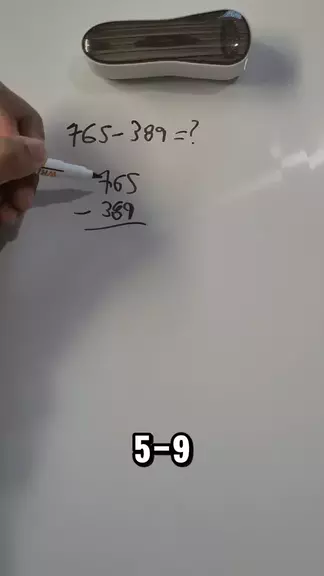 765-389=?
765
- 389
5-9